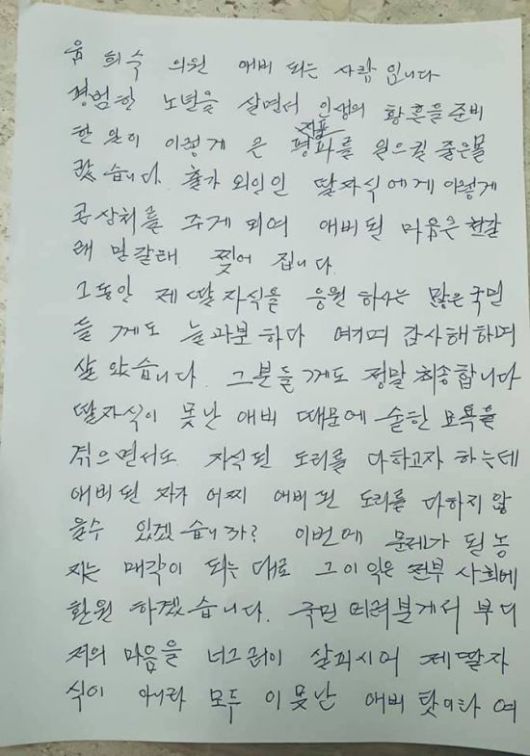 윤희숙 의원 애비 되는 사람 입니다
평범한 노년을 살면서 인생의 황혼을 준비
한 일이 이렇게 큰 평지풍파를 일으킬 줄은몰
랐습니다. 출가 외인인 딸자식에게 이렇게
큰상처를 주게 되여 애비된 마음은 천갈
래 만갈래 찢어 집니다.
그동안 제 딸자식을 응원 하시는 많은국민
들 께도 늘과분 하다 여기며 감사해하며
살았습니다. 그분들 께도 정말 죄송합니다
딸자식이 못난 애비 때문에 숱한 모욕을
겪으면서도 자식된 도리를 다하고자 하는데
애비된 자가 어찌 애비된 도리를 다하지 않
을수 있겠습니까? 이번에 문제가 된 농
지는 매각이 되는 대로 그 이익은 전부 사회에
환원 하겠습니다. 국민 여러분게서 부디
저의 마음을 너그러이 살피시어 제딸자
식이 아니라 모두 이못난 애비 탓이라 여